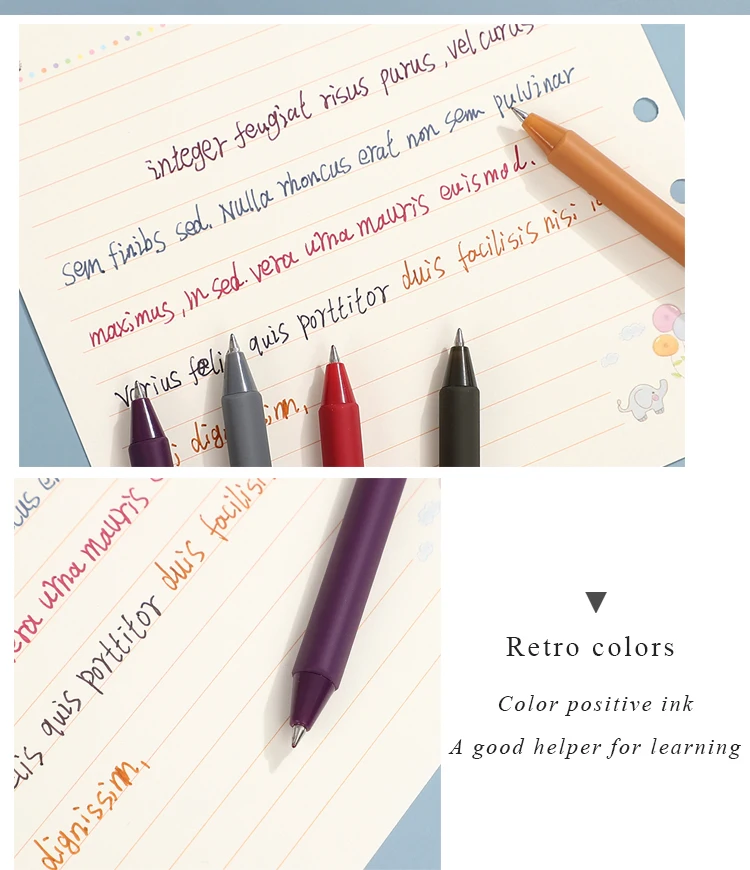 integer feugiat risus purus, vel curus
sem finibs sed. Nulla rhoncus erat non sem pulvinar
maximus, in sed. vera urna mauris euismod.
varius felis quis porttitor duis facilisis nisi
dignissim,
urna mauris
quis porttitor duis facilisi
dignissim,
Retro colors
Color positive ink
A good helper for learning